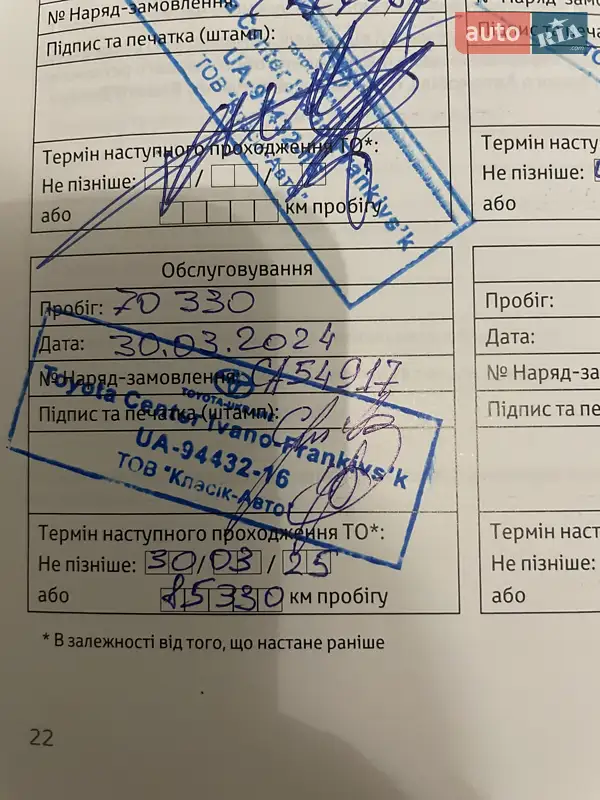 № Наряд-замовлення
Підпис та печатка (штамп):
UA-94432-16
ТОВ "Класік-Авто"
Frankivs'k
Термін наступного проходження ТО*:
Не пізніше: / /
або км пробігу
Обслуговування
Пробіг: 70 330
Дата: 30.03.2024
№ Наряд-замовлення: СА54917
Підпис та печатка (штамп):
TOYOTA-UKRAINE
Toyota Center Ivano-Frankivs'k
UA-94432-16
ТОВ "Класік-Авто"
Термін наступного проходження ТО*:
Не пізніше: 30/03/25
або 85330 км пробігу
* В залежності від того, що настане раніше
22
auto RIA
Термін наступ
Не пізніше:
або
Пробіг:
Дата:
№ Наряд-за
Підпис та пе
Термін наст
Не пізніше:
або